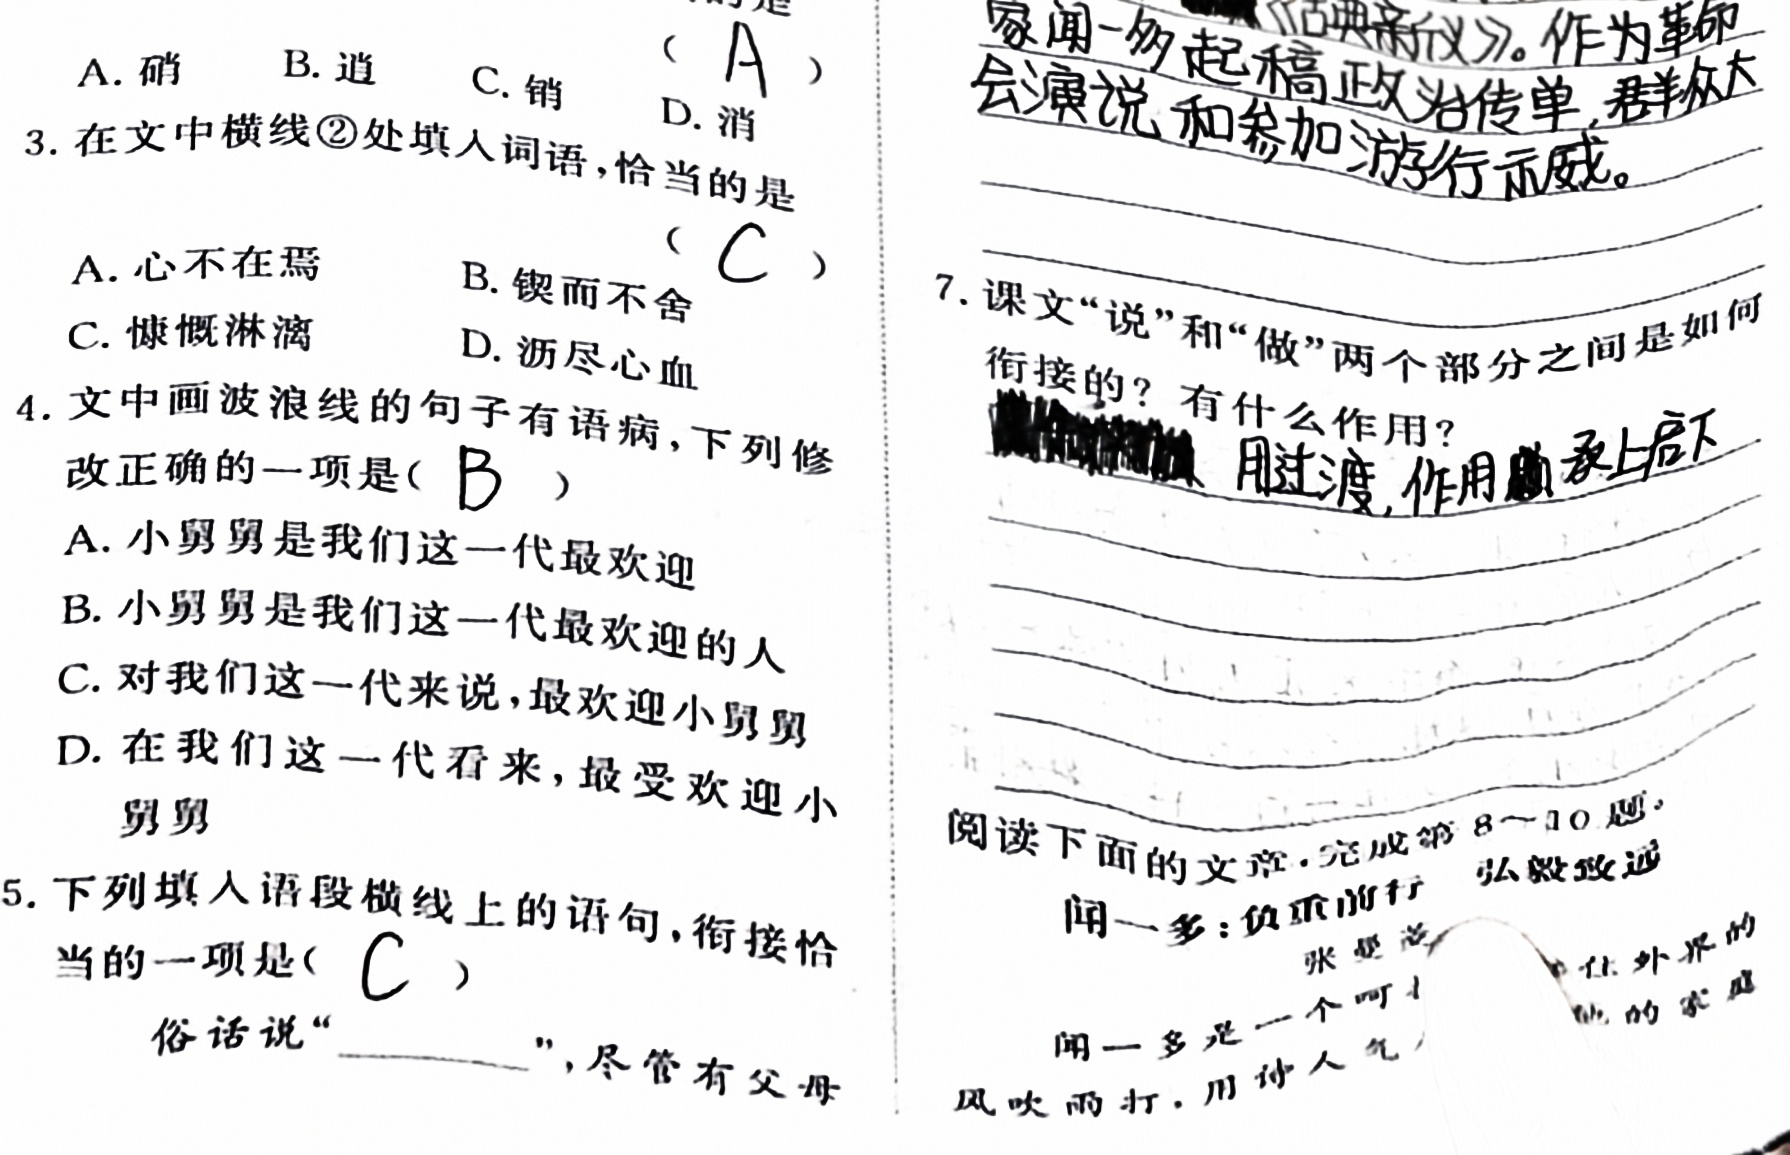 的是
( A )
A. 硝 B. 逍 C. 销 D. 消
3. 在文中横线②处填入词语,恰当的是
( C )
A. 心不在焉 B. 锲而不舍
C. 慷慨淋漓 D. 沥尽心血
4. 文中画波浪线的句子有语病,下列修
改正确的一项是( B )
A. 小舅舅是我们这一代最欢迎
B. 小舅舅是我们这一代最欢迎的人
C. 对我们这一代来说,最欢迎小舅舅
D. 在我们这一代看来,最受欢迎小
舅舅
5. 下列填入语段横线上的语句,衔接恰
当的一项是( C )
俗话说“ ”,尽管有父母
《古典新义》。作为革命
家闻一多起稿政治传单,群众大
会演说和参加游行示威。
7. 课文“说”和“做”两个部分之间是如何
衔接的?有什么作用?
用过渡,作用 承上启下
阅读下面的文章,完成第8~10题。
闻一多:负重前行 弘毅致远
张
闻一多是一个 在外界的
风吹雨打,用诗人气 他的家庭